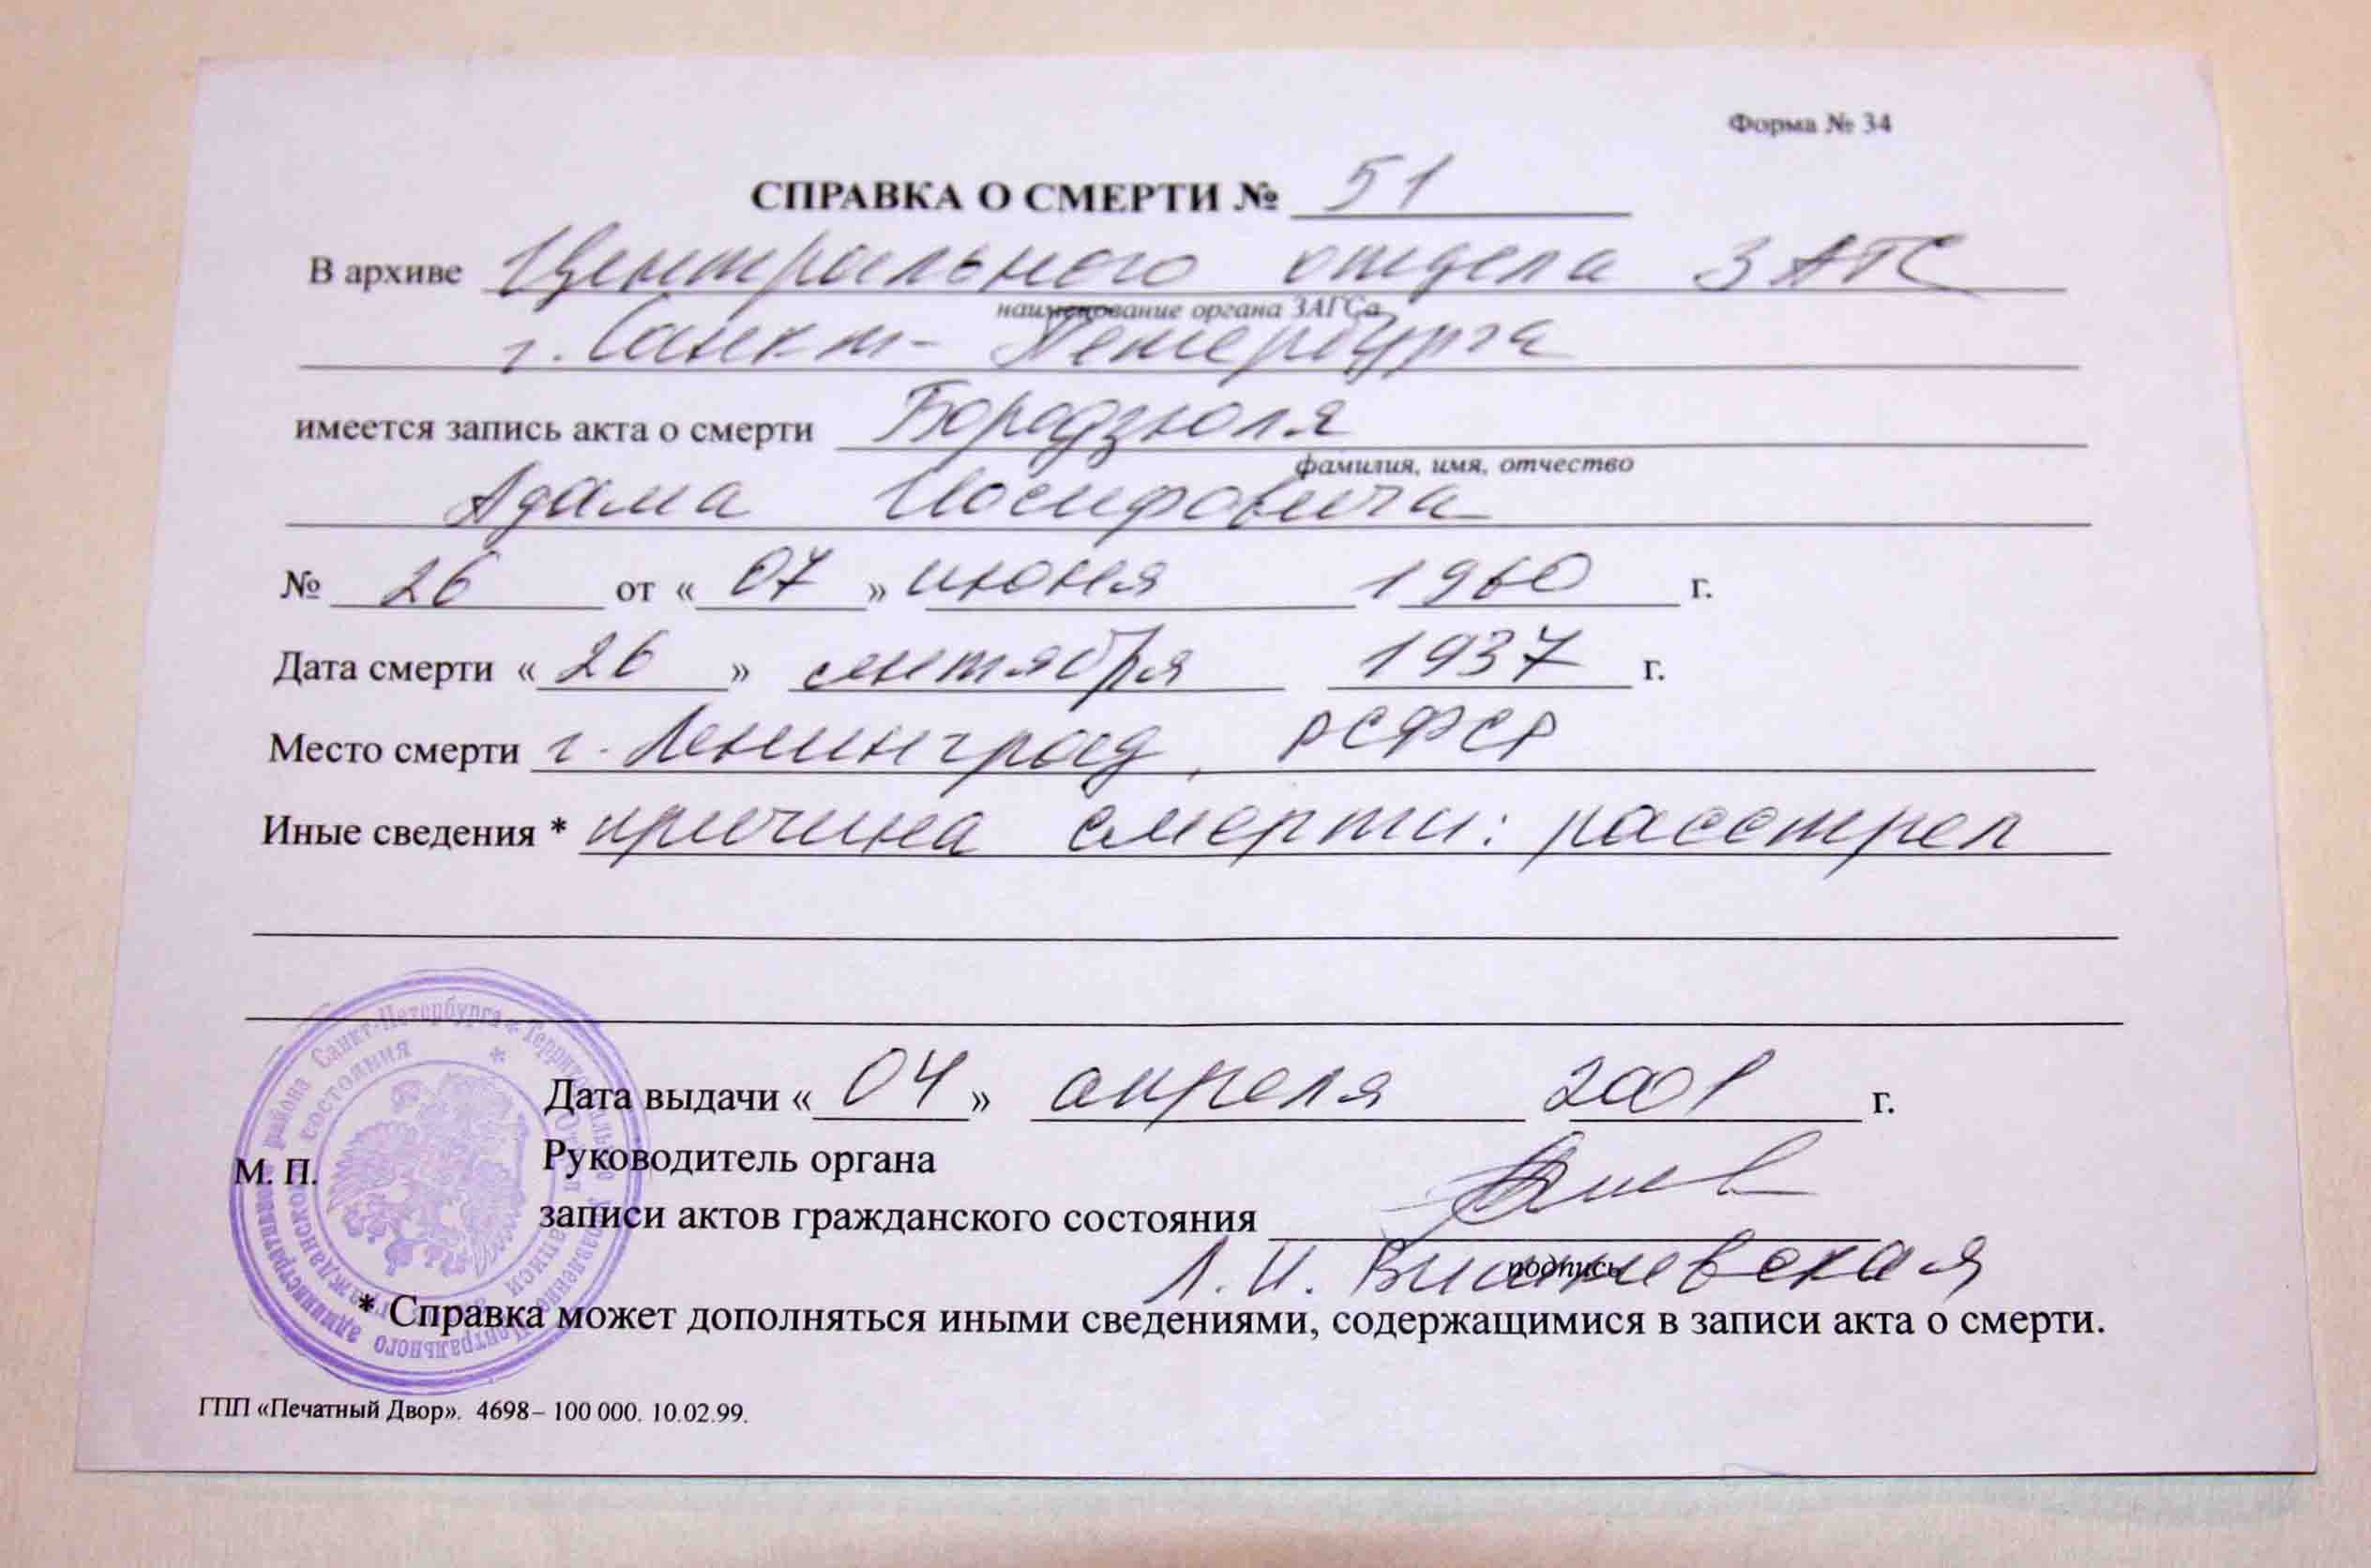 Форма № 34
СПРАВКА О СМЕРТИ № 51
В архиве Центрального отдела ЗАГС
наименование органа ЗАГСа
г. Санкт-Петербурга
имеется запись акта о смерти Бородзюля
фамилия, имя, отчество
Адама Иосифовича
№ 26 от « 07 » июня 1960 г.
Дата смерти « 26 » сентября 1937 г.
Место смерти г. Ленинград, РСФСР
Иные сведения * причина смерти: расстрел
Дата выдачи « 04 » апреля 2001 г.
Руководитель органа
М. П.
записи актов гражданского состояния
подпись
Л. И. Вишневская
* Справка может дополняться иными сведениями, содержащимися в записи акта о смерти.
района Санкт-Петербурга
гражданского состояния
ГПП «Печатный Двор». 4698– 100 000. 10.02.99.